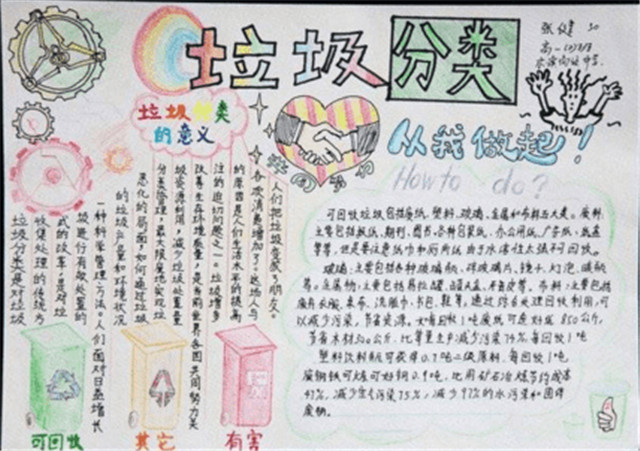 垃圾分类
张健
从我做起!
How to do?
垃圾分类
的意义
垃圾分类是对垃圾
收集处理的传统方
式的改革,是对垃
圾进行有效处置的
一种科学管理方法。人们面对日益增长
的垃圾产量和环境状况
恶化的局面,如何通过垃圾
分类管理,最大限度地实现垃
圾资源利用,减少垃圾处置量
改善生存环境质量,是当前世界各国共同关
注的迫切问题之一。垃圾增多
的原因是人们生活水平的提高
各项消费增加了
人们把垃圾变成了朋友。
可回收垃圾包括废纸、塑料、玻璃、金属和布料五大类。废纸:
主要包括报纸、期刊、图书、各种包装纸、办公用纸、广告纸、纸盒
等等,但是要注意纸巾和厕所纸由于水溶性太强不可回收。
玻璃:主要包括各种玻璃瓶、碎玻璃片、镜子、灯泡、暖瓶
等。金属物:主要包括易拉罐、罐头盒、牙膏皮等。布料:主要包括
废弃衣服、桌布、洗脸巾、书包、鞋等。通过综合处理回收利用,可
以减少污染,节省资源。如每回收1吨废纸可造好纸850公斤,
节省木材300公斤,比等量生产减少污染74%,每回收1吨
塑料饮料瓶可获得0.7吨二级原料,每回收1吨
废钢铁可炼好钢0.9吨,比用矿石冶炼节约成本
47%,减少空气污染75%,减少97%的水污染和固体
废物。
可回收
其它
有害